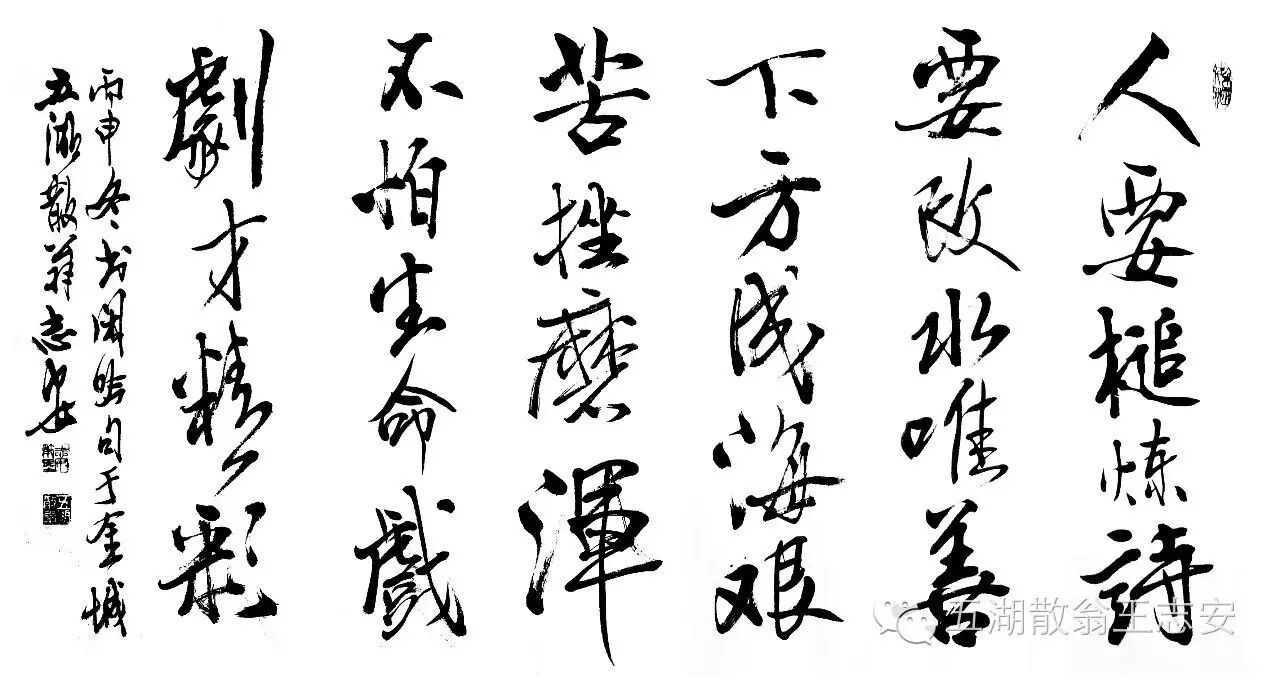 人要槌炼詩
要改水唯善
下方成海艰
苦挫磨渾
不怕生命戲
劇才精彩
丙申冬书闲吟句于金城
五湖散翁志安
五湖散翁王志安